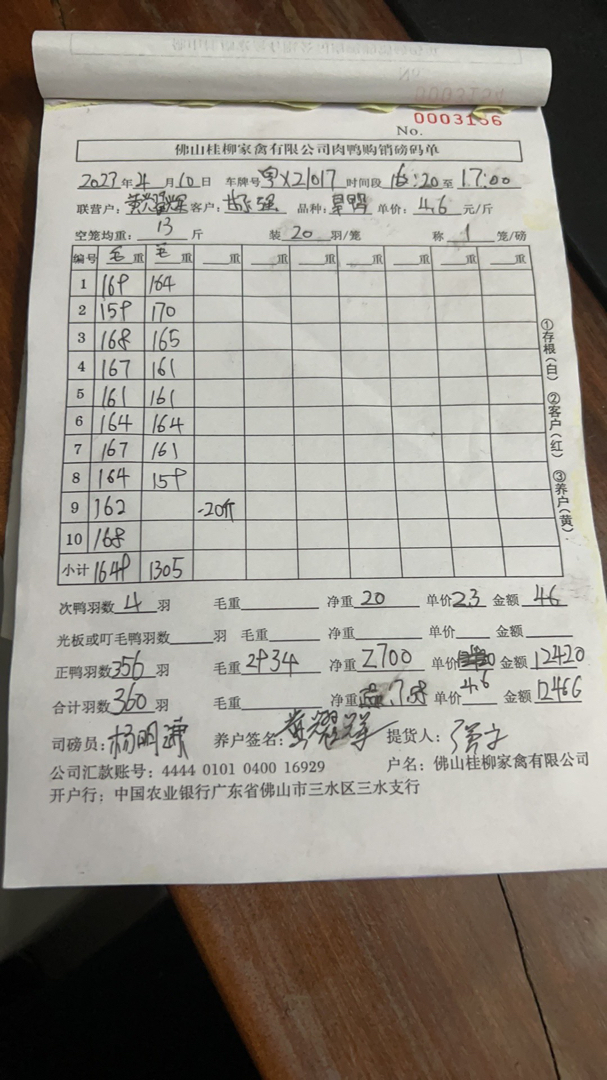 0003156
No.
佛山桂柳家禽有限公司肉鸭购销磅码单
2023年4月10日 车牌号粤X21017时间段16:20至17:00
联营户: 黄耀辉 客户: 强 品种: 单价: 4.6 元/斤
空笼均重: 13 斤 装 20 羽/笼 称 1 笼/磅
编号 毛重 毛重 重 重 重 重 重 重
1 169 164
2 159 170
3 168 165
4 167 161
5 161 161
6 164 164
7 167 161
8 164 159
9 162 -20斤
10 168
小计 1649 1305
次鸭羽数 4 羽 毛重 净重 20 单价 2.3 金额 46
光板或叮毛鸭羽数 羽 毛重 净重 单价 金额
正鸭羽数 356 羽 毛重 2934 净重 2700 单价 4.6 金额 12420
合计羽数 360 羽 毛重 净重 7.58 单价 金额 12466
司磅员: 杨明 养户签名: 黄耀辉 提货人:
公司汇款账号: 4444 0101 0400 16929 户名: 佛山桂柳家禽有限公司
开户行: 中国农业银行广东省佛山市三水区三水支行
①存根(白) ②客户(红) ③养户(黄)